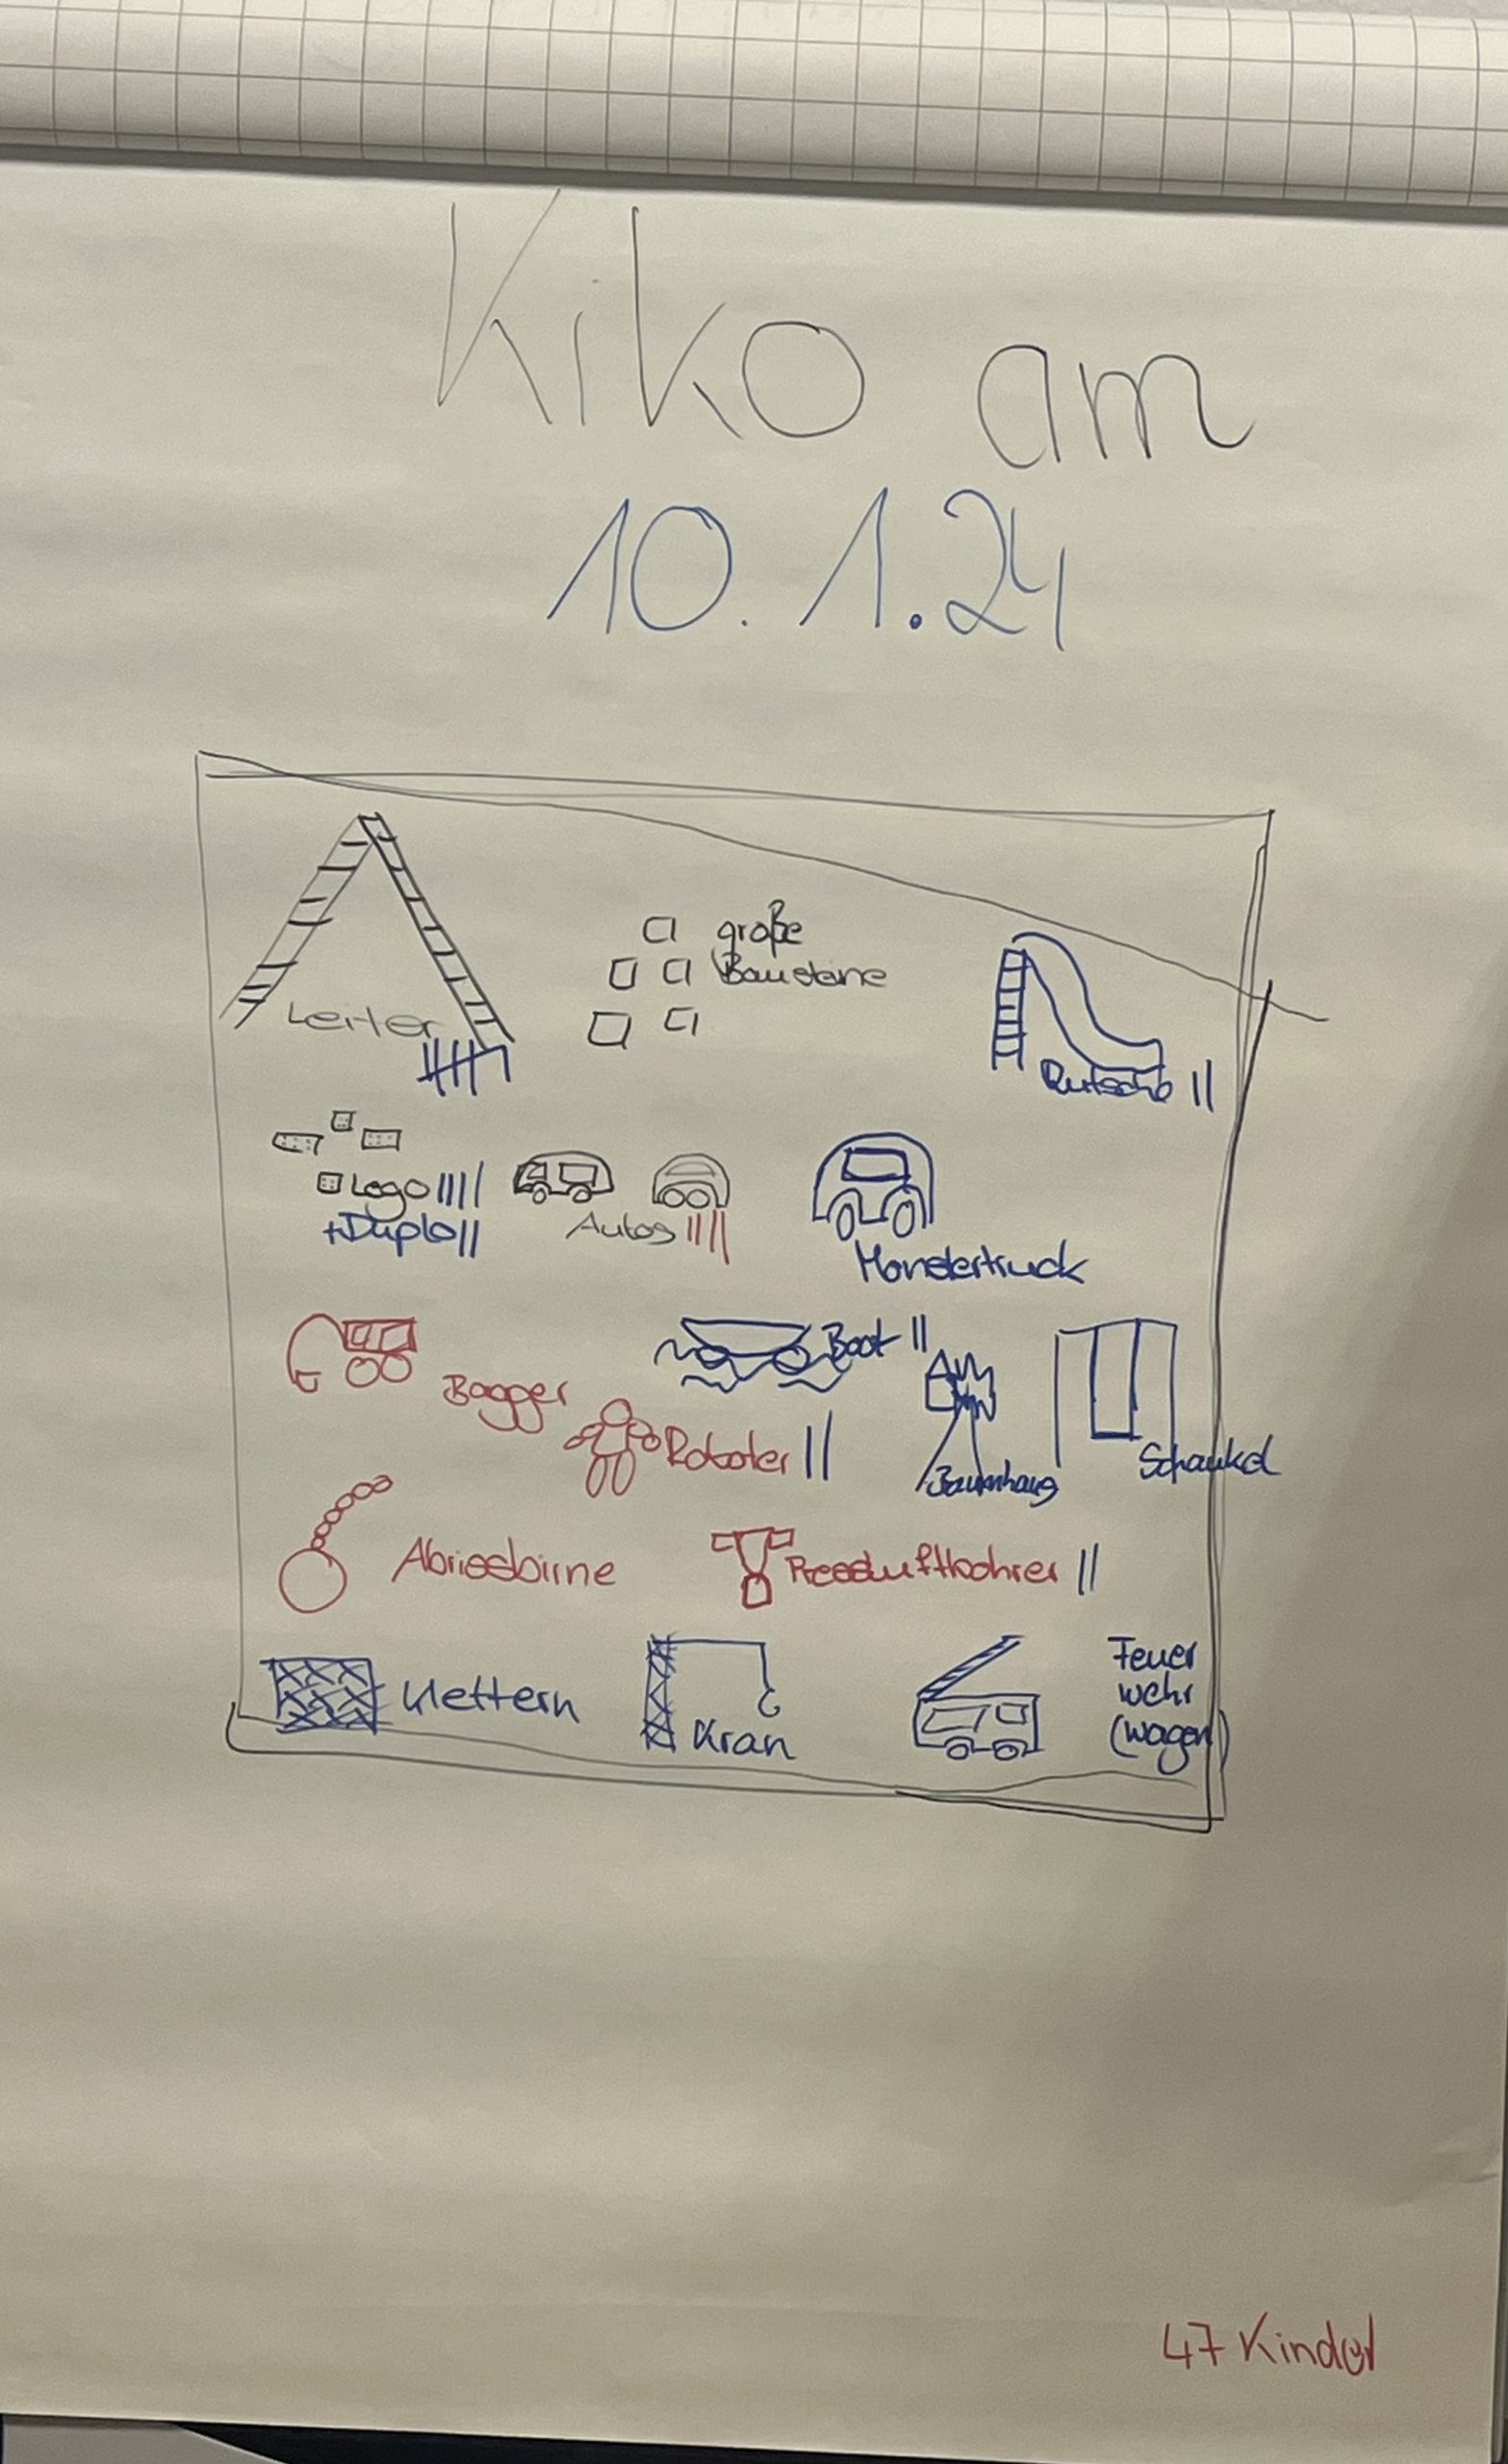 Kiko am
10.1.24
große
Bausteine
Leiter
Rutsche ||
Lego ||||
+Duplo ||
Autos ||||
Monstertruck
Boot ||
Bagger
Roboter ||
Baumhaus
Schaukel
Abrissbirne
Pressluftbohrer ||
Klettern
Kran
Feuer
wehr
(wagen)
47 Kinder